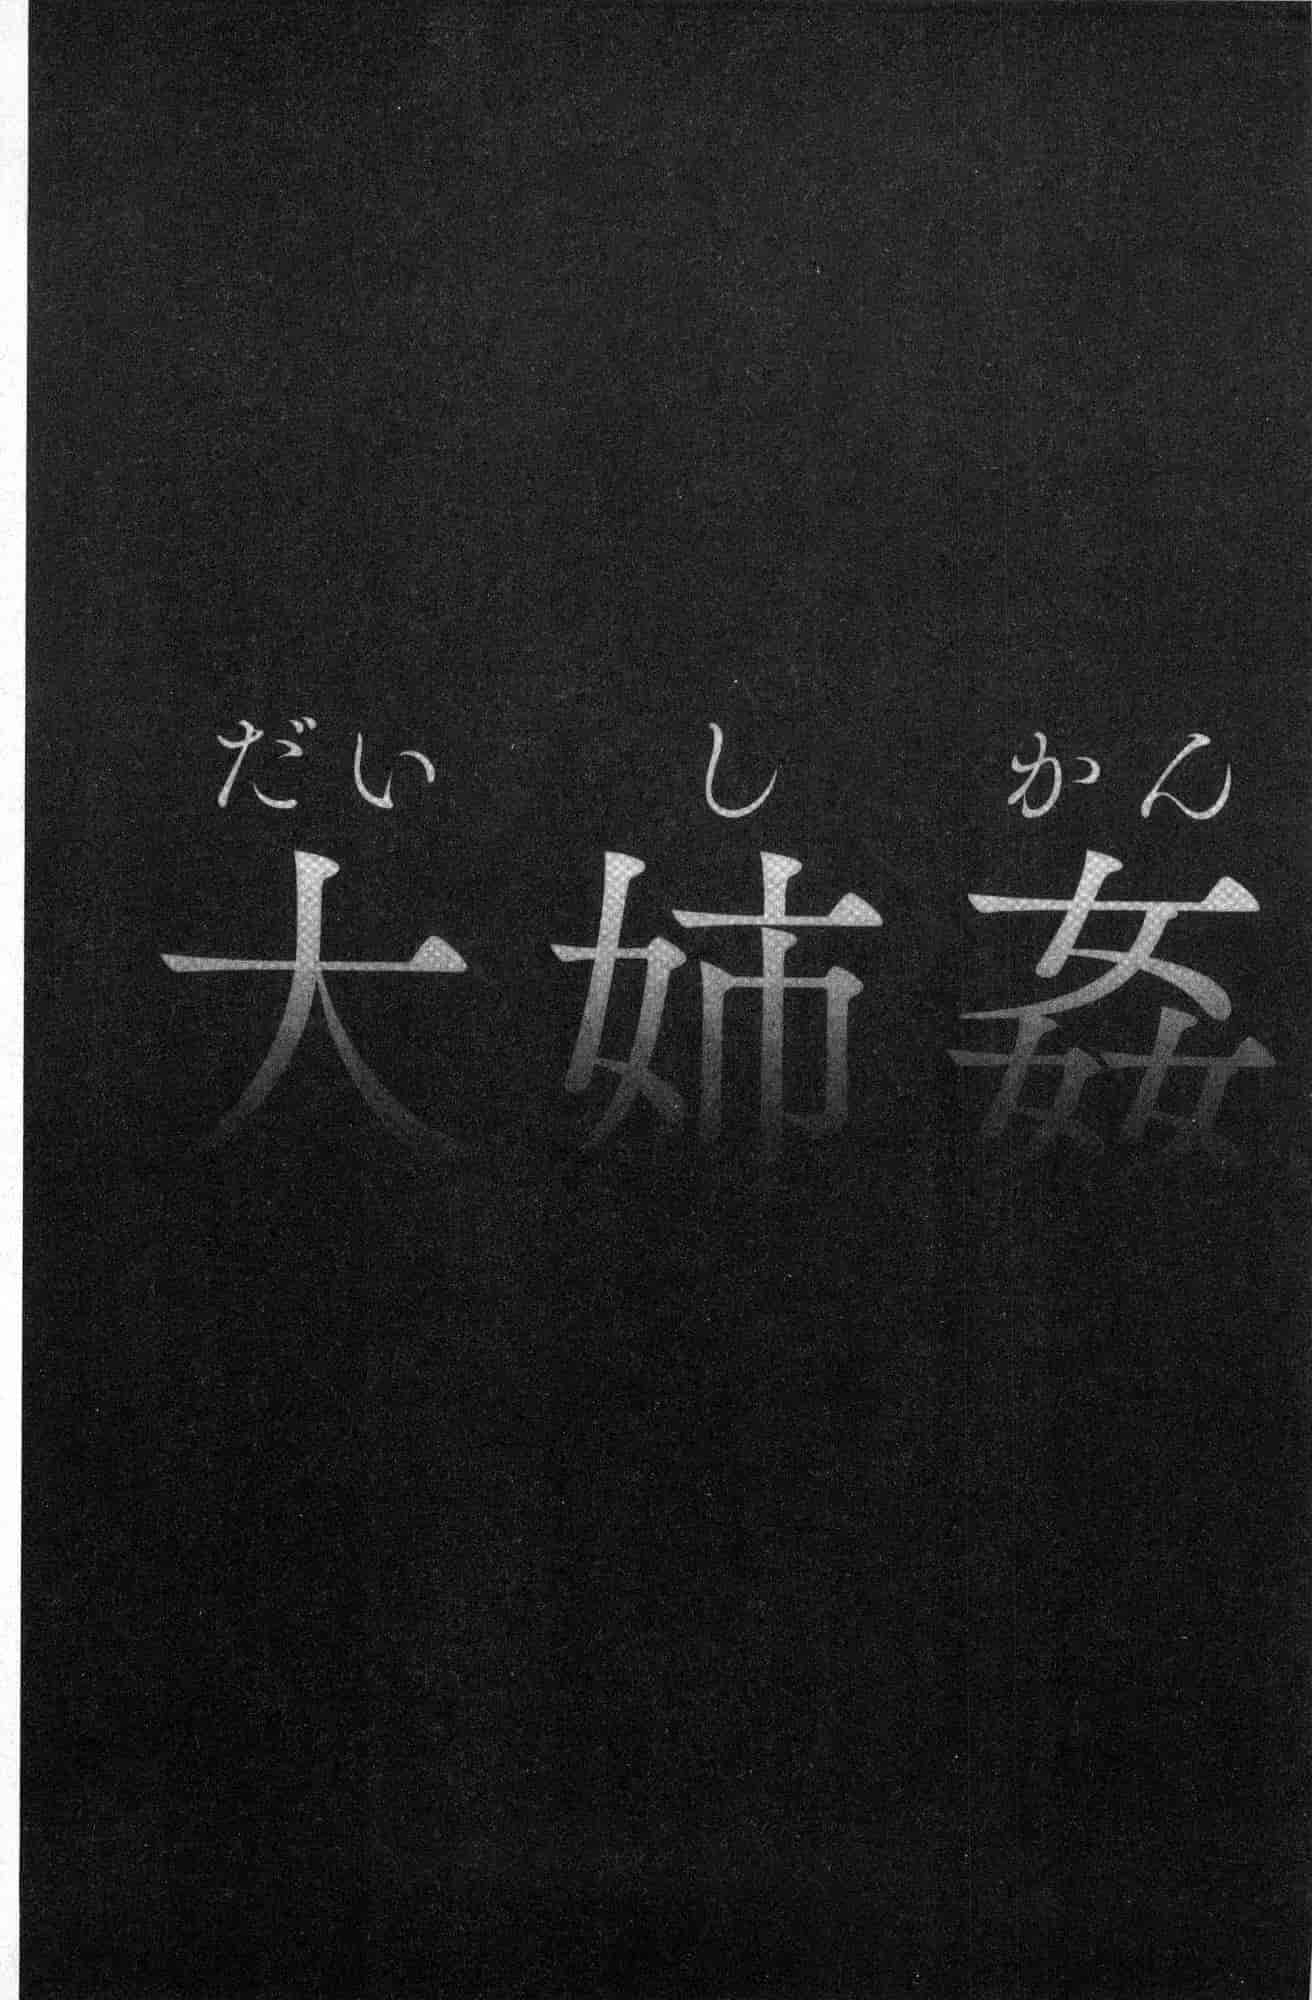 だいしかん
大姉姦